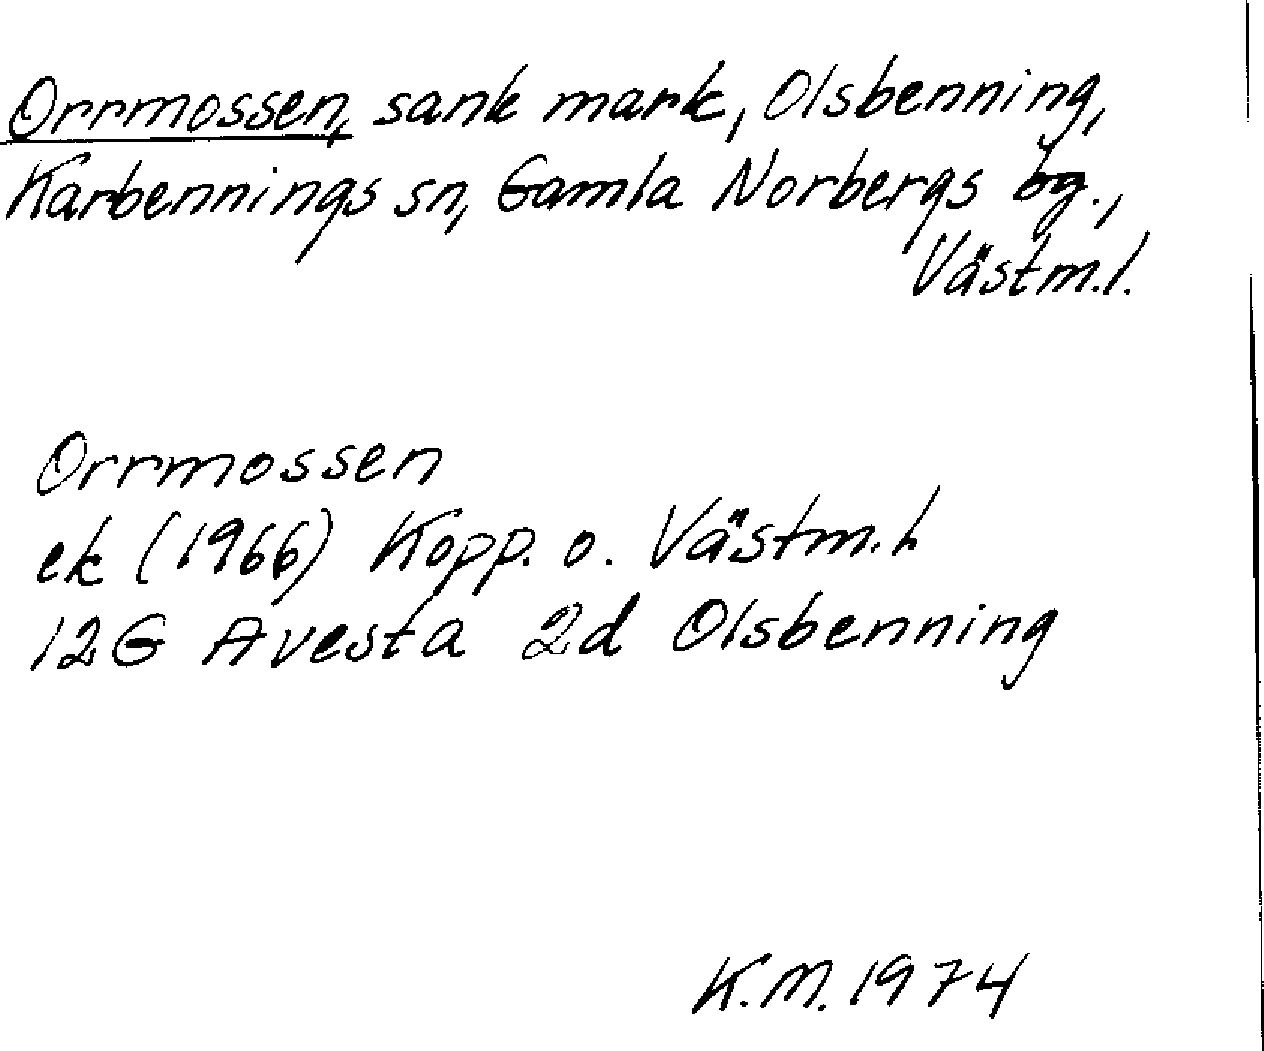 Orrmossen, sank mark, Olsbenning,
Karbennings sn, Gamla Norbergs bg.,
Västm.l.
Orrmossen
ek (1966) Kopp. o. Västm.l.
12G Avesta 2d Olsbenning
K.M. 1974